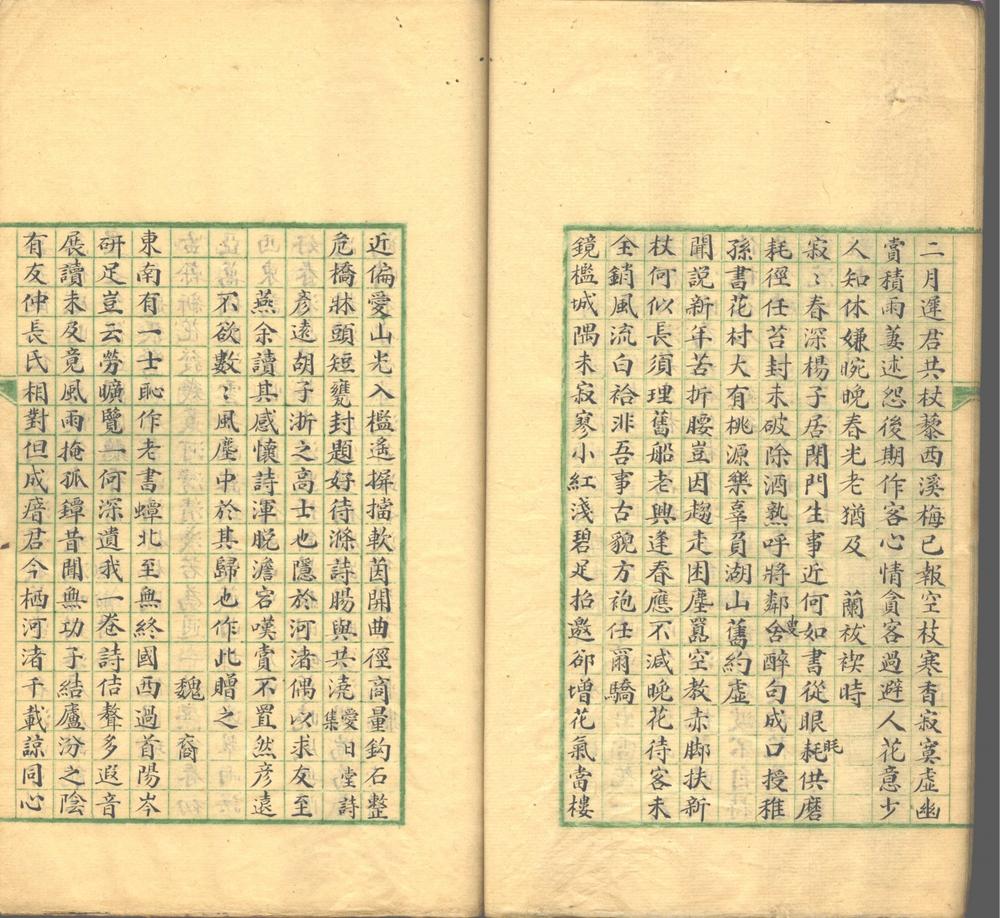 二月遲君共杖藜西溪梅已報空枝寒香寂寞虛幽
賞積雨萋迷怨後期作客心情貪客過避人花意少
人知休嫌晼晚春光老猶及 蘭祓禊時
寂〻春深楊子居閉門生事近何如書從眼耗供磨
眊
耗徑任苔封未破除酒熟呼將鄰舍醉句成口授稚
叟
孫書花村大有桃源樂辜負湖山舊約虛
聞說新年苦折腰豈因趨走困塵囂空教赤脚扶新
杖何似長須理舊船老興逢春應不減晚花待客未
全銷風流白袷非吾事古貌方袍任爾驕
鏡檻城隅未寂寥小紅淺碧足招邀卻增花氣當樓
近偏愛山光入檻遙摒擋軟茵開曲徑商量釣石整
危橋牀頭短甕封題好待滌詩腸與共澆愛日堂詩
集
彥遠胡子浙之高士也隱於河渚偶以求友至
燕余讀其感懷詩渾脫澹宕嘆賞不置然彥遠
不欲數〻風塵中於其歸也作此贈之
魏 裔
東南有一士恥作老書蟫北至無終國西過首陽岑
研足豈云勞曠覽一何深遺我一卷詩佶聱多遐音
展讀未及竟風雨掩孤鐔昔聞無功子結廬汾之陰
有友仲長氏相對但成瘖君今栖河渚千載諒同心